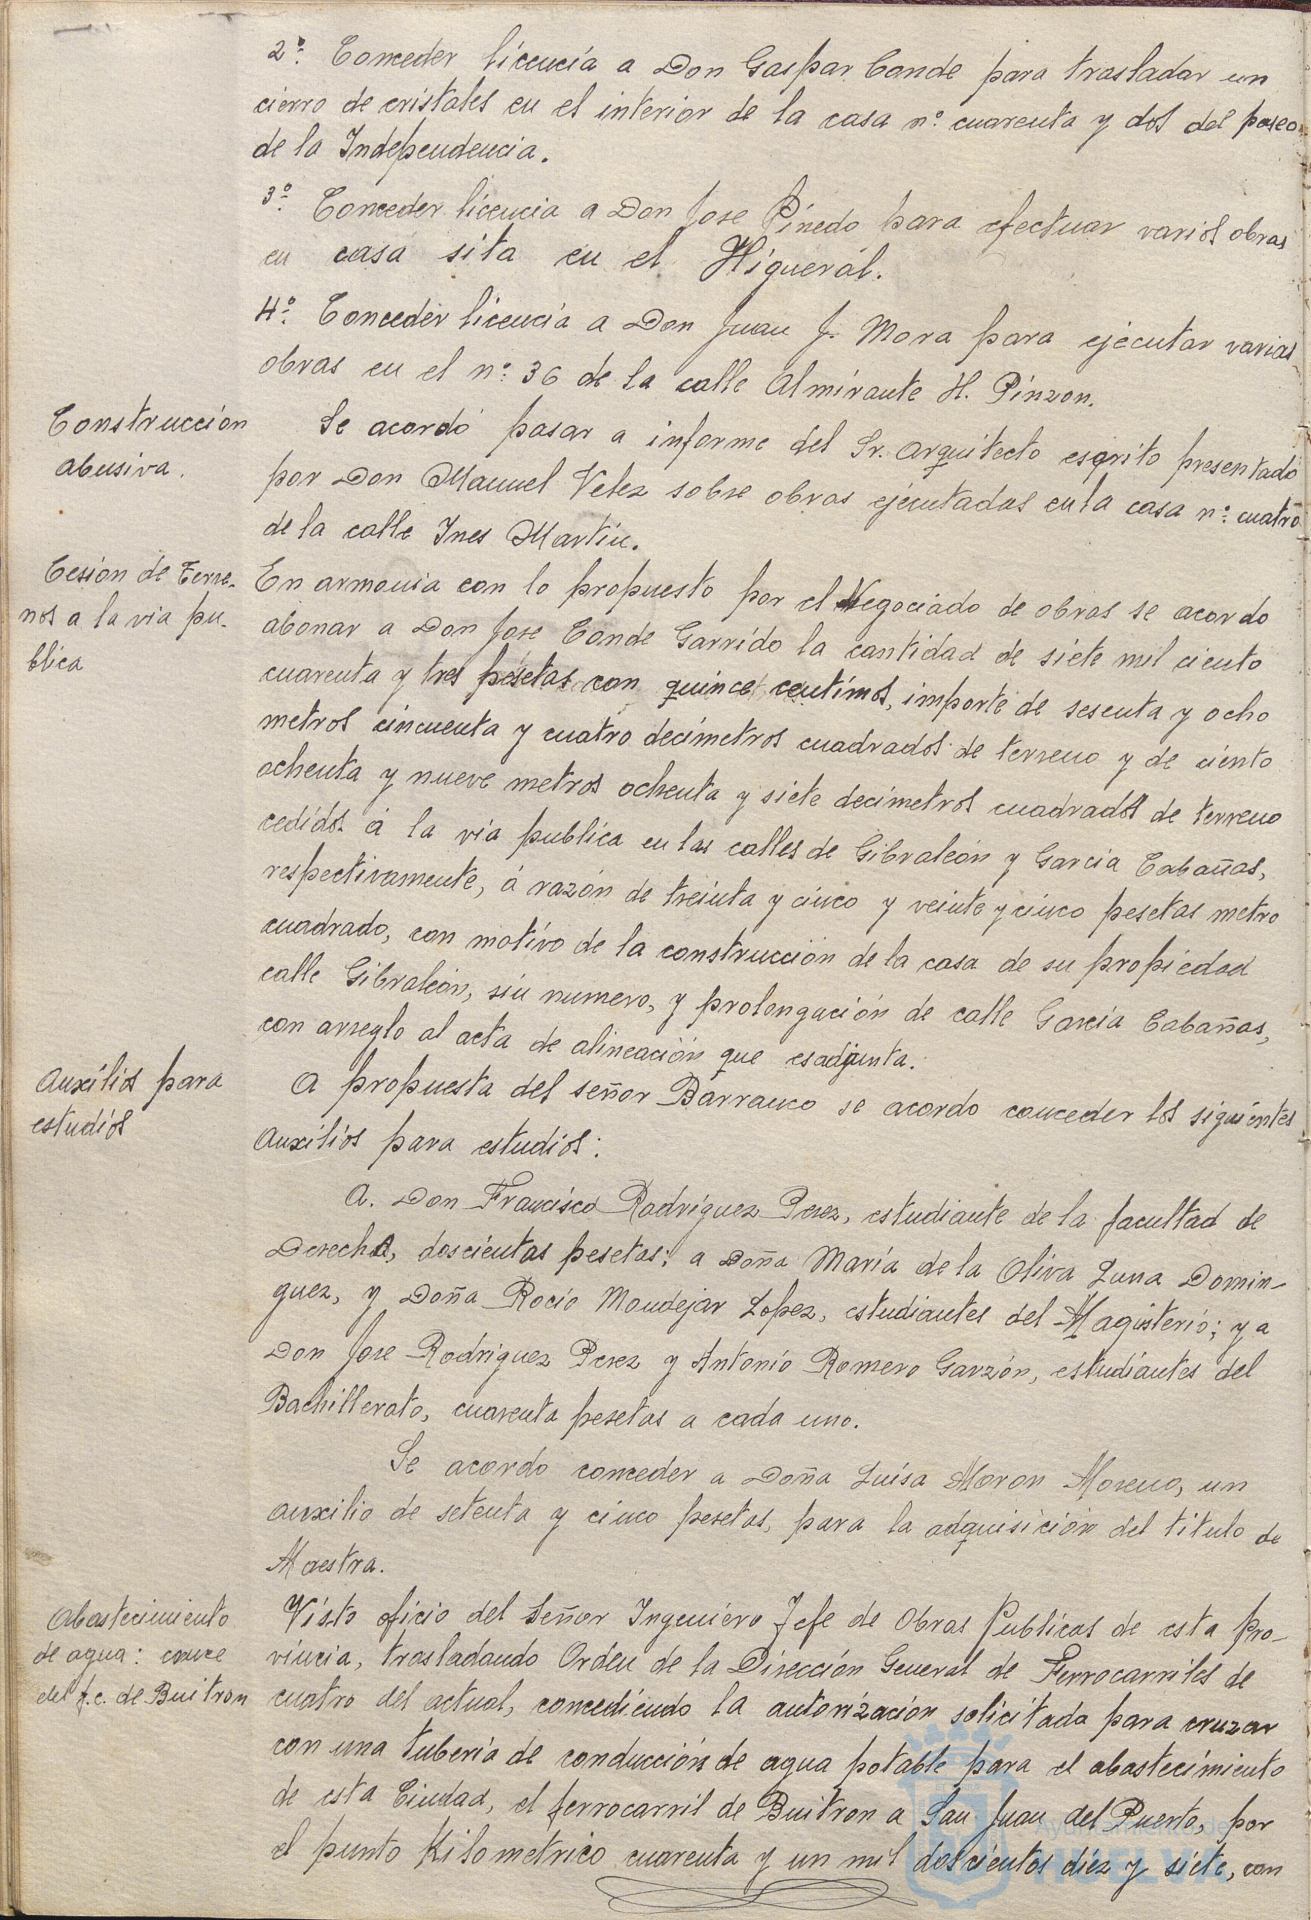 2º: Conceder licencia a Don Gaspar Conde para trasladar un
cierro de cristales en el interior de la casa nº. cuarenta y dos del paseo
de la Independencia.
3º: Conceder licencia a Don Jose Pinedo para efectuar varios obras
en casa sita en el Higueral.
4º: Conceder licencia a Don Juan J. Mora para ejecutar varias
obras en el nº: 36 de la calle Almirante H. Pinzon.
Construcción
abusiva.
Se acordó pasar a informe del Sr. Arquitecto escrito presentado
por Don Manuel Velez sobre obras ejecutadas en la casa nº: cuatro
de la calle Ines Martin.
Cesión de Terre-
nos a la via pu-
blica
En armonia con lo propuesto por el Negociado de obras se acordo
abonar a Don Jose Conde Garrido la cantidad de siete mil ciento
cuarenta y tres pesetas con quince centimos, importe de sesenta y ocho
metros cincuenta y cuatro decimetros cuadrados de terreno y de ciento
ochenta y nueve metros ochenta y siete decimetros cuadrados de terreno
cedidos á la via publica en las calles de Gibraleón y Garcia Cabañas,
respectivamente, á razón de treinta y cinco y veinte y cinco pesetas metro
cuadrado, con motivo de la construcción de la casa de su propiedad
calle Gibraleón, sin numero, y prolongación de calle Garcia Cabañas,
con arreglo al acta de alineación que esadjunta.
Auxilios para
estudios
A propuesta del señor Barranco se acordo conceder los siguientes
Auxilios para estudios:
A. Don Francisco Rodriguez Perez, estudiante de la facultad de
Derecho, doscientas pesetas; a Doña María de la Oliva Luna Domin-
guez, y Doña Rocio Mondejar Lopez, estudiantes del Magisterio; y a
Don Jose Rodriguez Perez y Antonio Romero Garzón, estudiantes del
Bachillerato, cuarenta pesetas a cada uno.
Se acordo conceder a Doña Luisa Moron Moreno, un
auxilio de setenta y cinco pesetas, para la adquisición del titulo de
Maestra.
Abastecimiento
de agua: cruce
del f.c. de Buitron
Visto oficio del Señor Ingeniero Jefe de Obras Publicas de esta Pro-
vincia, trasladando Orden de la Dirección General de Ferrocarriles de
cuatro del actual, concediendo la autorización solicitada para cruzar
con una tuberia de conducción de agua potable para el abastecimiento
de esta Ciudad, el ferrocarril de Buitron a San Juan del Puerto, por
el punto Kilometrico cuarenta y un mil doscientos diez y siete, con
Ayuntamiento de
HUELVA